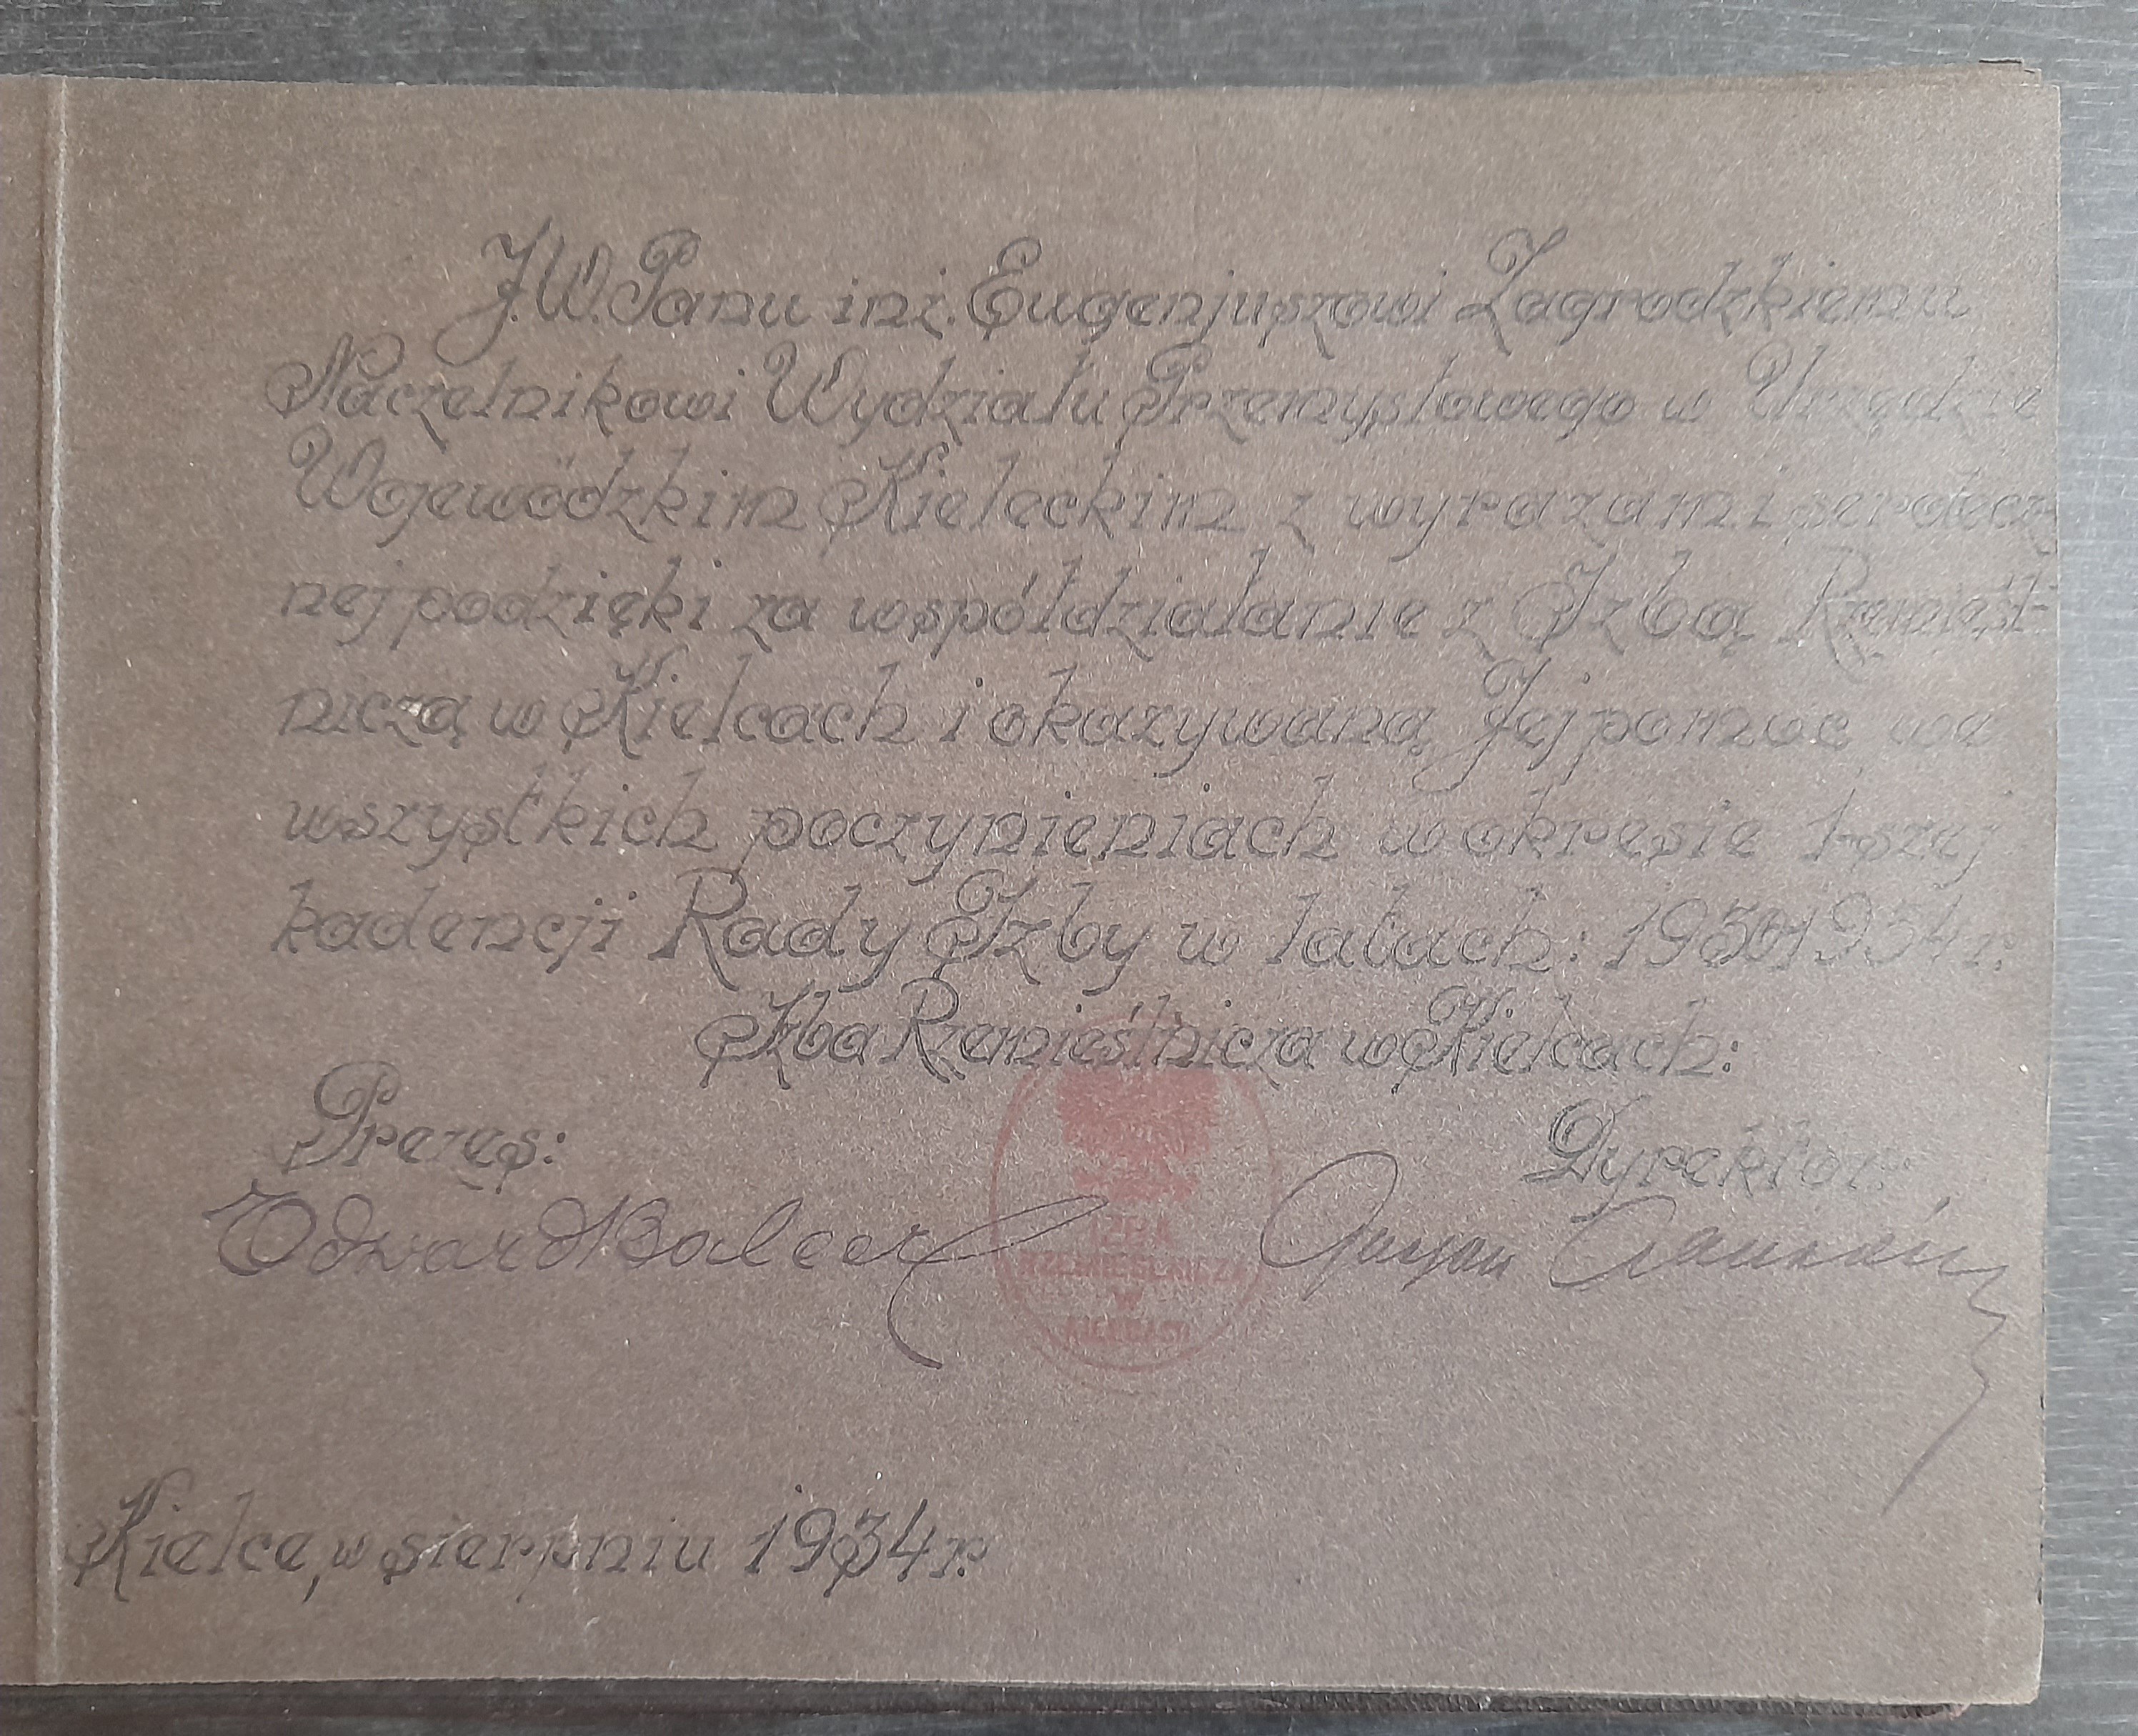 J.W.Panu inż. Eugenjuszowi Zagrodzkiemu
Naczelnikowi Wydziału Przemysłowego w Urzędzie
Wojewódzkim Kieleckim z wyrazami serdecz-
nej podzięki za współdziałanie z Izbą Rzemieśl-
niczą w Kielcach i okazywaną Jej pomoc we
wszystkich poczynieniach w okresie 1-szej
kadencji Rady Izby w latach: 1930-1934 r.
Izba Rzemieślnicza w Kielcach:
Prezes: Dyrektor:
Edward Balcer
IZBA
RZEMIEŚLNICZA
W
KIELCACH
Kielce, w sierpniu 1934 r.